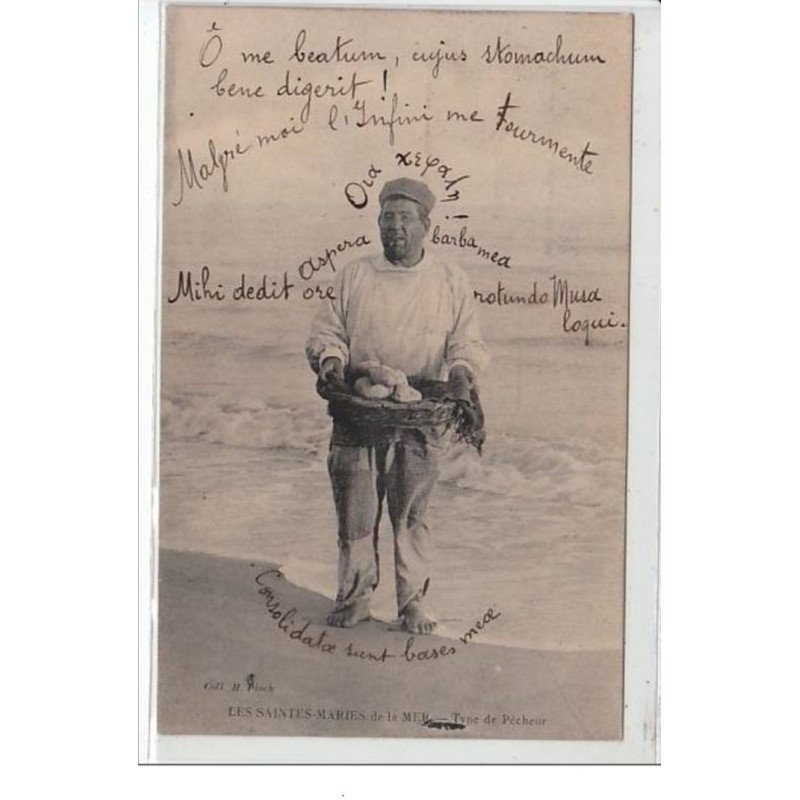 Ô me beatum, cujus stomachum
bene digerit !
Malgré moi l'Infini me Tourmente
Οια χεφαλη !
aspera barba mea
Mihi dedit ore rotundo Musa
loqui.
Consolidatæ sunt bases meæ
Coll. H
LES SAINTES-MARIES de la MER — Type de Pêcheur